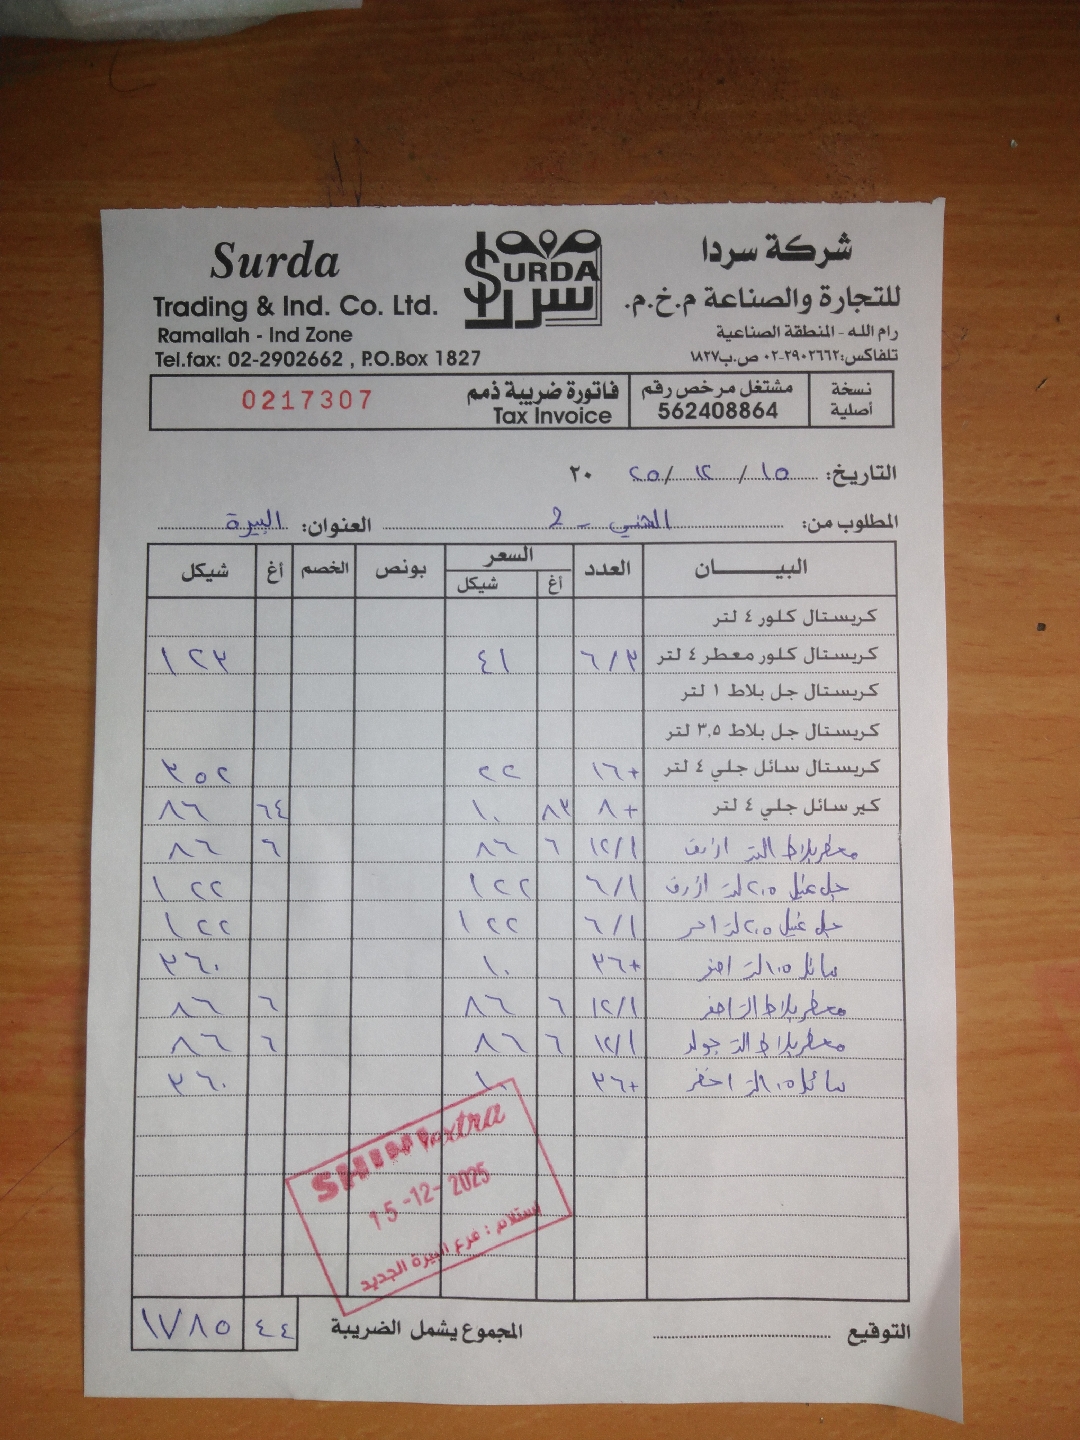 Surda
Trading & Ind. Co. Ltd.
Ramallah - Ind Zone
Tel.fax: 02-2902662 , P.O.Box 1827
$URDA
سردا
شركة سردا
للتجارة والصناعة م.خ.م.
رام الله - المنطقة الصناعية
تلفاكس: ٢٩٠٢٦٦٢-٠٢ ص.ب ١٨٢٧
نسخة أصلية
مشتغل مرخص رقم 562408864
فاتورة ضريبة ذمم
Tax Invoice
0217307
التاريخ: ١٥ / ١٢ / ٢٥ ٢٠
المطلوب من: الشني - 2 العنوان: البيرة
البيـــــــان العدد السعر بونص الخصم أغ شيكل
أغ شيكل
كريستال كلور ٤ لتر
كريستال كلور معطر ٤ لتر ٦/٣ ٤١ ١٢٣
كريستال جل بلاط ١ لتر
كريستال جل بلاط ٣,٥ لتر
كريستال سائل جلي ٤ لتر +١٦ ٢٢ ٣٥٢
كير سائل جلي ٤ لتر +٨ ٨٣ ١٠ ٦٤ ٨٦
معطر بلاط التر ازرق ١٢/١ ٦ ٨٦ ٦ ٨٦
جل غيل ٢.٥ لتر ازرق ٦/١ ١٢٢ ١٢٢
جل غيل ٢.٥ لتر احمر ٦/١ ١٢٢ ١٢٢
سائل ١.٥ لتر +٣٦ ١٠ ٣٦٠
معطر بلاط التر ١٢/١ ٦ ٨٦ ٦ ٨٦
معطر بلاط التر جولد ١٢/١ ٦ ٨٦ ٦ ٨٦
سائل ١.٥ لتر اخضر +٣٦ ١٠ ٣٦٠
SHINI extra
15-12-2025
إستلام : فرع البيرة الجديد
التوقيع المجموع يشمل الضريبة ٤٤ ١٧٨٥